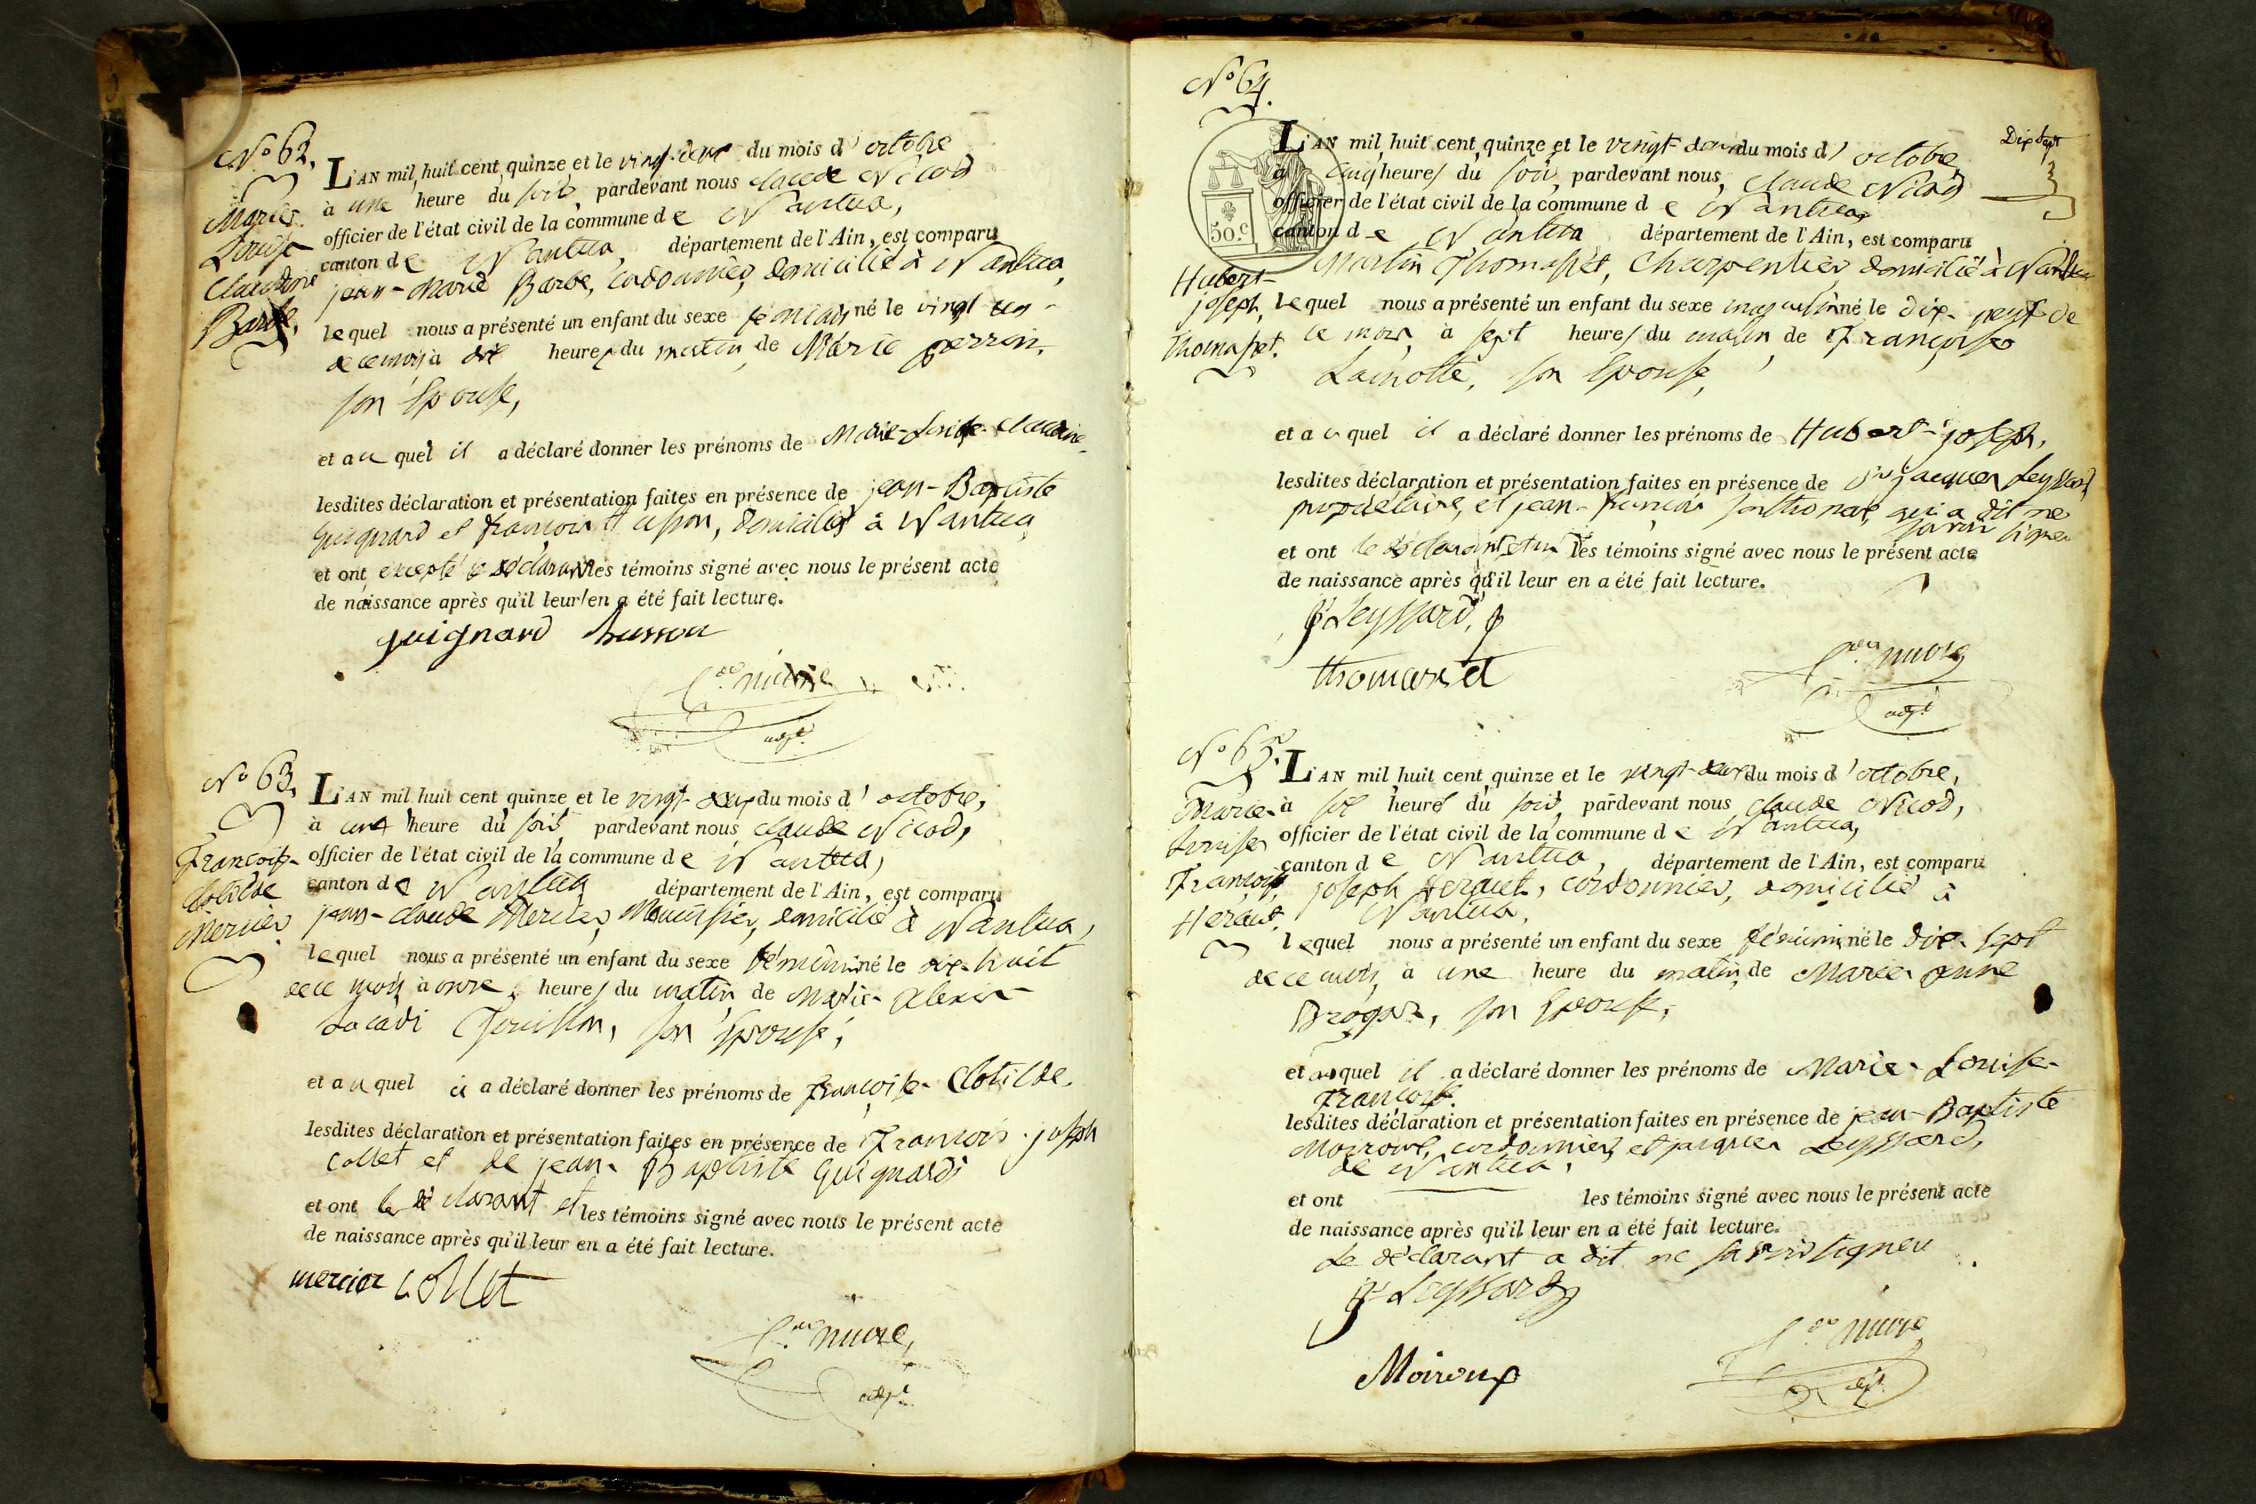 No 62.
Marie
Louise
Claudine
Barbe.
L'AN mil huit cent quinze et le vingt-deux du mois d'octobre
à une heure du soir, pardevant nous Claude Nicod
officier de l'état civil de la commune de Nantua,
canton de Nantua, département de l'Ain, est comparu
jean-Marie Barbe, cordonnier, domicilié à Nantua,
lequel nous a présenté un enfant du sexe féminin né le vingt un
de ce mois à dix heures du matin, de Marie perrin,
son Epouse,
et au quel il a déclaré donner les prénoms de Marie-Louise-Claudine.
lesdites déclaration et présentation faites en présence de jean-Baptiste
Guignard et françois husson, domiciliés à Nantua,
et ont excepté le déclarant les témoins signé avec nous le présent acte
de naissance après qu'il leur en a été fait lecture.
guignard husson
adjt
No 63.
Françoise
Clotilde
Mercier
L'AN mil huit cent quinze et le vingt-deux du mois d'octobre,
à une heure du soir pardevant nous Claude Nicod,
officier de l'état civil de la commune de Nantua,
canton de Nantua département de l'Ain, est comparu
jean-claude Mercier, Menuisier, domicilié à Nantua,
lequel nous a présenté un enfant du sexe féminin né le dix-huit
de ce mois à onze heures du matin, de Marie Alexis
son Epouse,
et au quel il a déclaré donner les prénoms de françoise-Clotilde.
lesdites déclaration et présentation faites en présence de François joseph
Collet et de jean-Baptiste Guignard
et ont le déclarant et les témoins signé avec nous le présent acte
de naissance après qu'il leur en a été fait lecture.
mercier Collet
adjt
No 64.
Dix Sept
50.c
Hubert-
joseph,
Thomasset.
L'AN mil huit cent quinze et le vingt-deux du mois d'octobre,
à cinq heures du soir, pardevant nous, Claude Nicod
officier de l'état civil de la commune de Nantua,
canton de Nantua département de l'Ain, est comparu
Martin Thomasset, Charpentier, domicilié à Nantua
lequel nous a présenté un enfant du sexe masculin né le dix-neuf de
ce mois, à sept heures du matin de Françoise
Lamotte, son Epouse,
et au quel il a déclaré donner les prénoms de Hubert-joseph,
lesdites déclaration et présentation faites en présence de jacques Leyssard
propriétaire, et jean-françois qui a dit ne
savoir signer
et ont le déclarant et les témoins signé avec nous le présent acte
de naissance après qu'il leur en a été fait lecture.
Leyssard,
thomasset
adjt
No 65.
Marie
Louise
Françoise,
L'AN mil huit cent quinze et le vingt-deux du mois d'octobre,
à six heures du soir, pardevant nous Claude Nicod,
officier de l'état civil de la commune de Nantua,
canton de Nantua, département de l'Ain, est comparu
joseph, cordonnier, domicilié à
Nantua,
lequel nous a présenté un enfant du sexe féminin né le dix-sept
de ce mois, à une heure du matin, de Marie anne
son Epouse,
et au quel il a déclaré donner les prénoms de Marie-Louise-
Françoise.
lesdites déclaration et présentation faites en présence de jean-Baptiste
Moiroux, cordonnier, et jacques Leyssard,
de Nantua,
et ont les témoins signé avec nous le présent acte
de naissance après qu'il leur en a été fait lecture.
Le déclarant a dit ne savoir signer
Leyssard
Moiroux
adjt